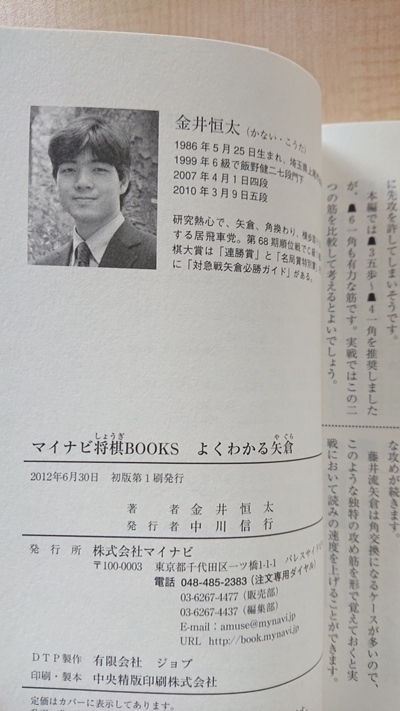 金井恒太（かない・こうた）
1986年5月25日生まれ。埼玉県上
1999年6級で飯野健二七段門下
2007年4月1日四段
2010年3月9日五段
研究熱心で、矢倉、角換わり、横歩
する居飛車党。第68期順位戦でC級
棋大賞は「連勝賞」と「名局賞特別賞」
に「対急戦矢倉必勝ガイド」がある。
しょうぎ やぐら
マイナビ将棋BOOKS よくわかる矢倉
2012年6月30日 初版第1刷発行
著者 金井恒太
発行者 中川信行
発行所 株式会社マイナビ
〒100-0003 東京都千代田区一ツ橋1-1-1 パレスサイド
電話 048-485-2383（注文専用ダイヤル）
03-6267-4477（販売部）
03-6267-4437（編集部）
E-mail：amuse@mynavi.jp
URL http://book.mynavi.jp
DTP製作 有限会社 ジョブ
印刷・製本 中央精版印刷株式会社
定価はカバーに表示してあります。
に先攻を許してしまいそうです。
本編では▲3五歩〜▲4一角を推奨しました
が、▲6一角も有力な筋です。実戦ではこの二
つの筋を比較して考えるとよいでしょう。
な攻めが続きます。
藤井流矢倉は角交換になるケースが多いので、
このような独特の攻め筋を形で覚えておくと実
戦において読みの速度を上げることができます。